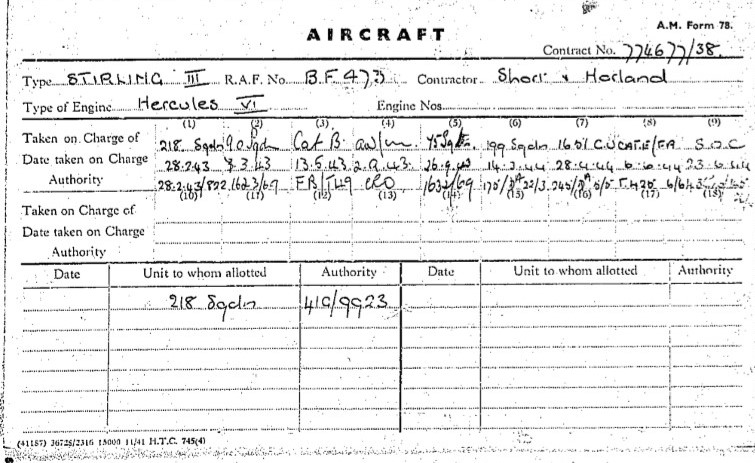 A.M. Form 78.
AIRCRAFT
Contract No. 774677/38.
Type STIRLING III R.A.F. No. BF 473 Contractor Short & Harland
Type of Engine Hercules VI Engine Nos.
(1) (2) (3) (4) (5) (6) (7) (8) (9)
Taken on Charge of 218 Sqdn 90 Sqdn Cat B. 199 Sqdn 1651 C.U. CAT E/FA S.O.C
Date taken on Charge 28.2.43 8.3.43 13.5.43 2.9.43 26.9.43 14.3.44 28.4.44 6.6.44 23.6.44
Authority 28.2.43/822 1623/69 FB/T49 CRO 1632/69
(10) (11) (12) (13) (14) (15) (16) (17) (18)
Taken on Charge of
Date taken on Charge
Authority
Date Unit to whom allotted Authority Date Unit to whom allotted Authority
218 Sqdn 410/9923
(41187) 36728/2316 15000 11/41 H.T.C. 745(4)